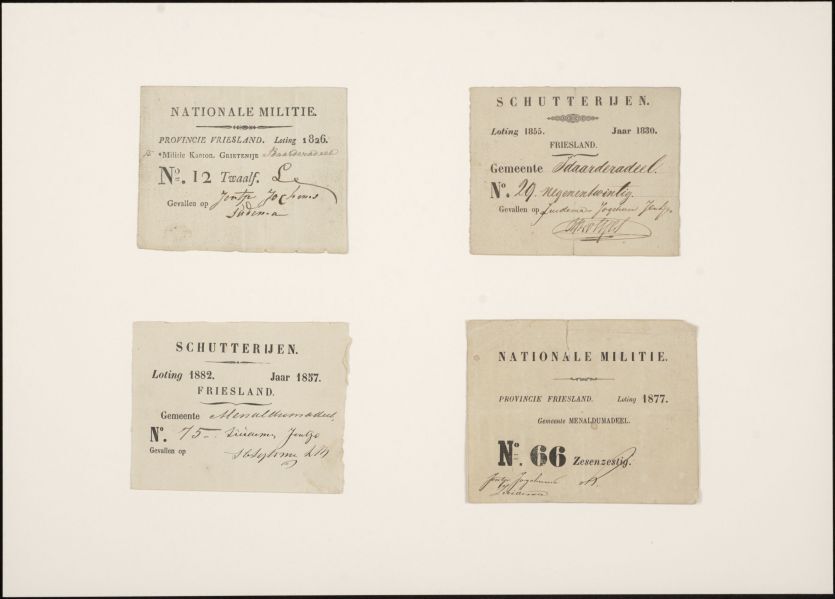 NATIONALE MILITIE.
PROVINCIE VRIESLAND. Loting 1826.
Militie Kanton. GRIETENIJE Baarderadeel
No. 12 Twaalf.
Gevallen op Jentje Jochems
Zuidema
SCHUTTERIJEN.
Loting 1855. Jaar 1830.
FRIESLAND.
Gemeente Idaarderadeel.
No. 29. negenentwintig.
Gevallen op Zuidema Jogchum Jentje.
SCHUTTERIJEN.
Loting 1882. Jaar 1857.
FRIESLAND.
Gemeente Menaldumadeel.
No. 75 Zuidema, Jentje
Gevallen op
NATIONALE MILITIE.
PROVINCIE FRIESLAND. Loting 1877.
Gemeente MENALDUMADEEL.
No. 66 Zesenzestig.
Jentje Jogchums
Zuidema